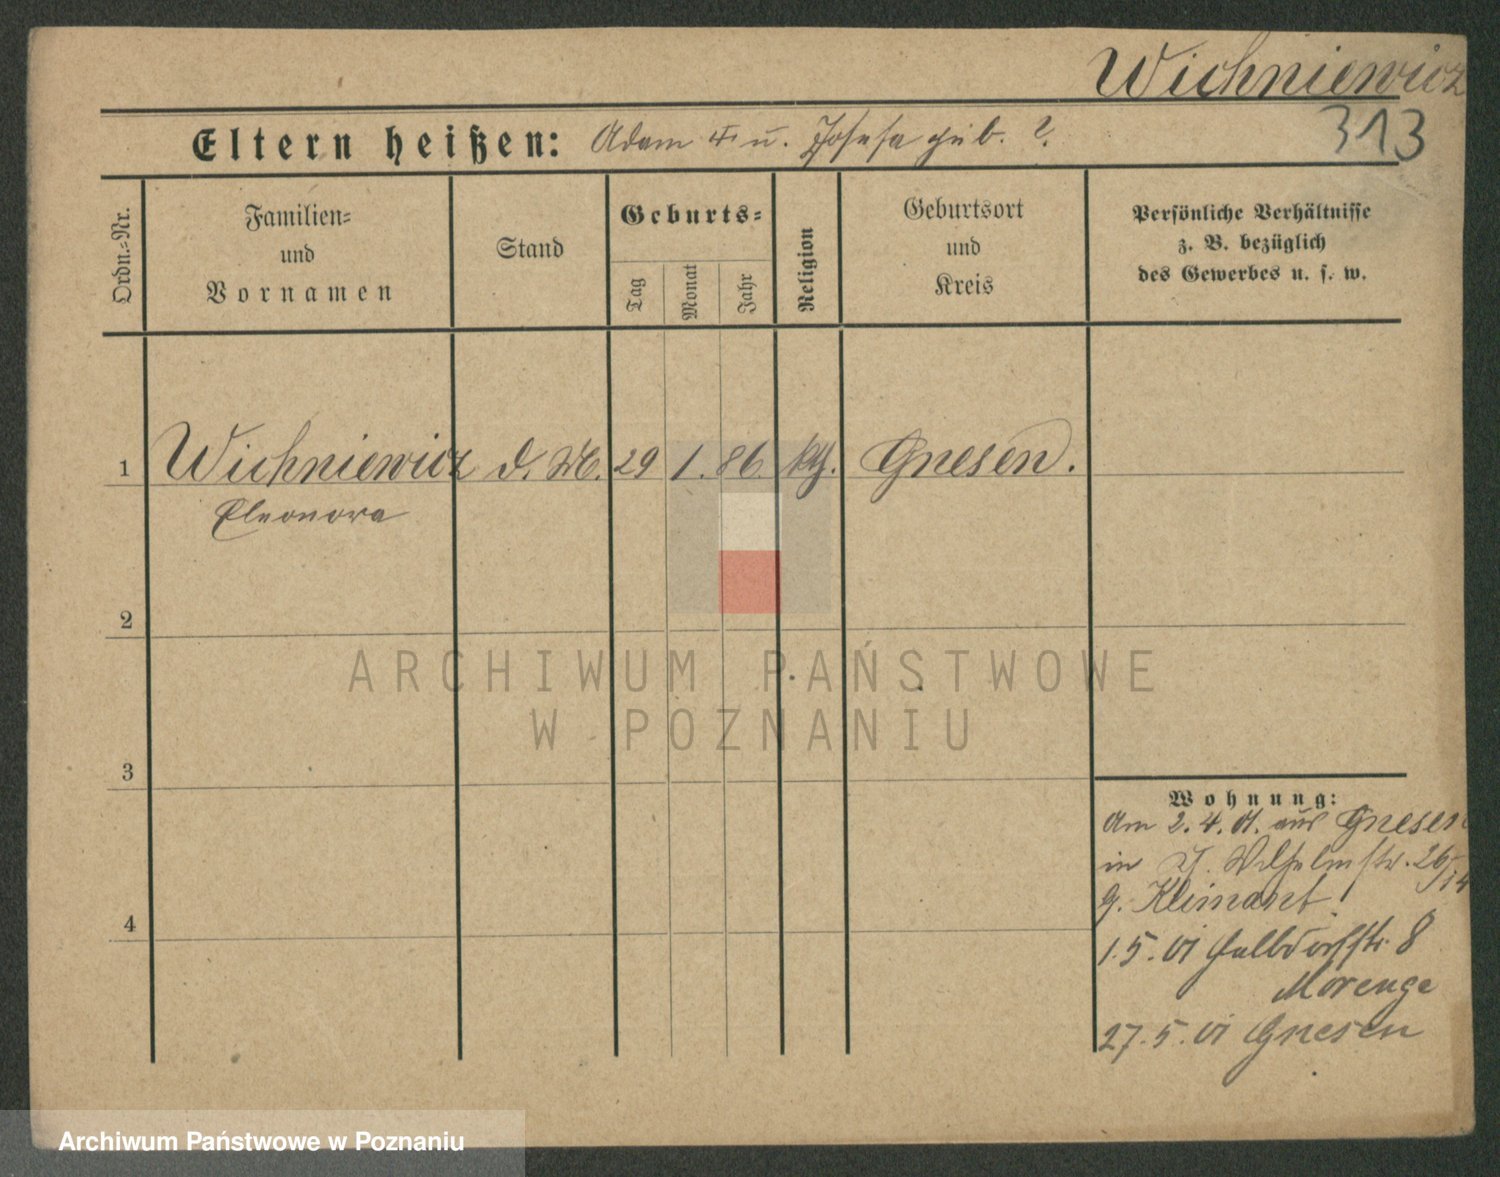 Wichniewicz
313
Eltern heißen: Adam u. Josefa geb. ?.
Ordn.-Nr.
Familien-
und
Vornamen
Stand
Geburts-
Tag
Monat
Jahr
Religion
Geburtsort
und
Kreis
Persönliche Verhältnisse
z. B. bezüglich
des Gewerbes u. s. w.
1 Wichniewicz d. M. 29 1. 86. kth. Gnesen.
Eleonora
2
ARCHIWUM PAŃSTWOWE
W POZNANIU
3
Wohnung:
Am 2.4.01. aus Gnesen
in Wilhelmstr. 26
4
1.5.01 8
27.5.01 Gnesen
Archiwum Państwowe w Poznaniu